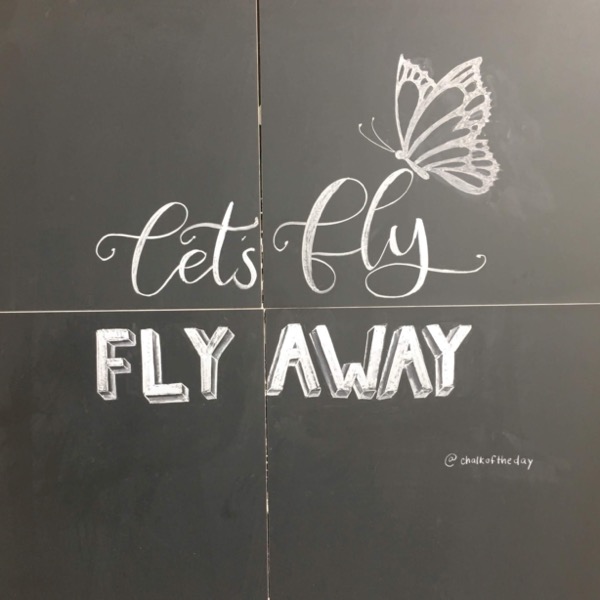 let's fly
FLY AWAY
@chalkoftheday